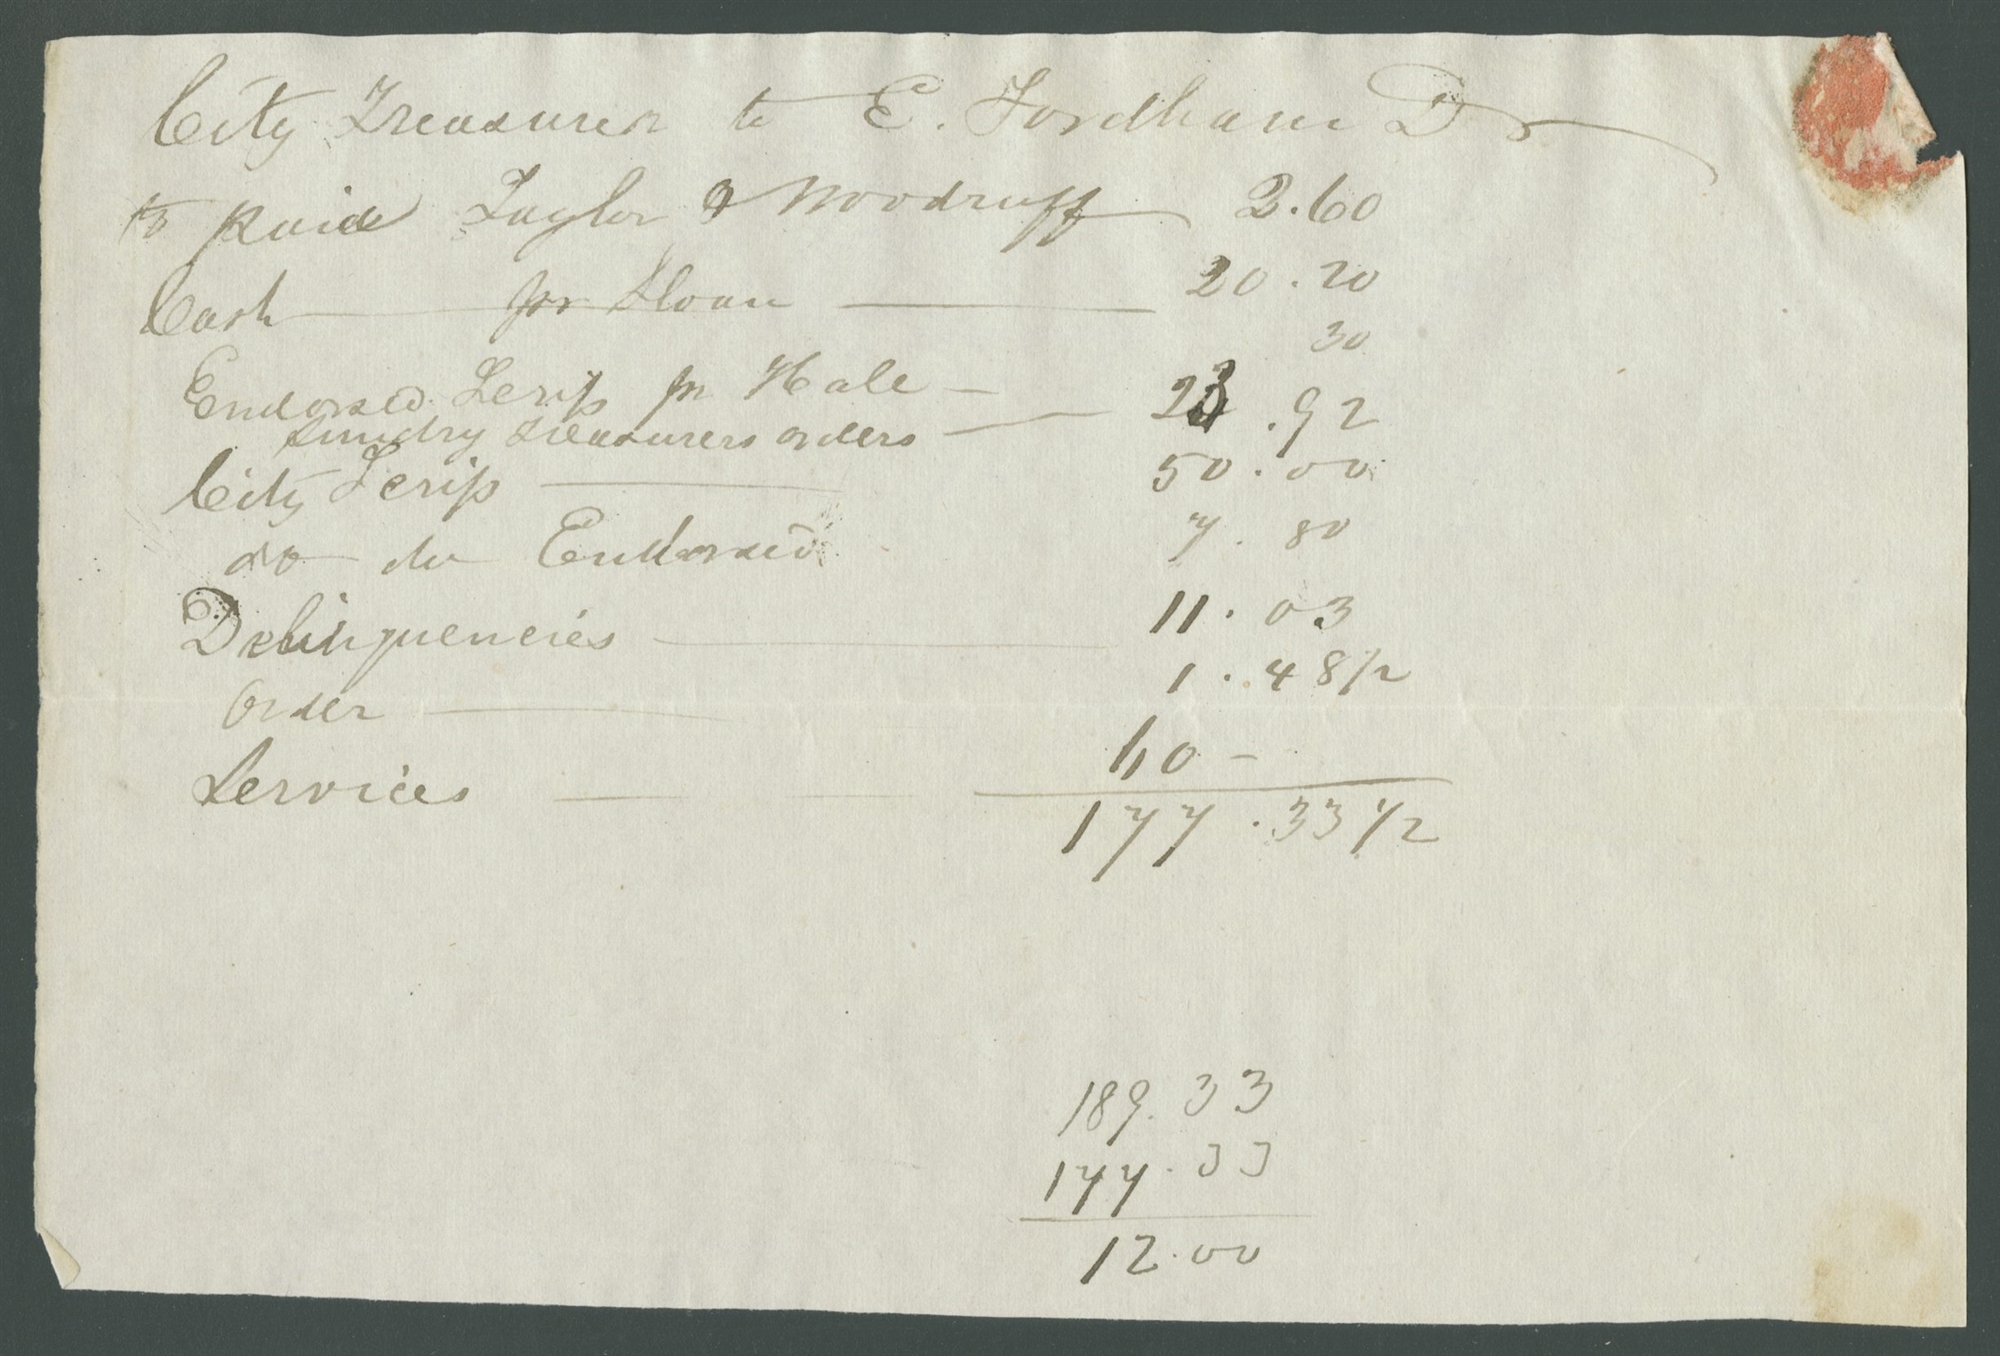 City Treasurer to E. Fordham Dr
to paid Taylor & Woodruff 2.60
Cash pr Sloan 20.20
Endorsed Scrip pr Hale 30
Sundry Treasurers orders 23.92
City Scrip 50.00
do do Endorsed 7.80
Delinquencies 11.03
Order 1.48 1/2
Services 60 -
177.33 1/2
189.33
177.33
12.00